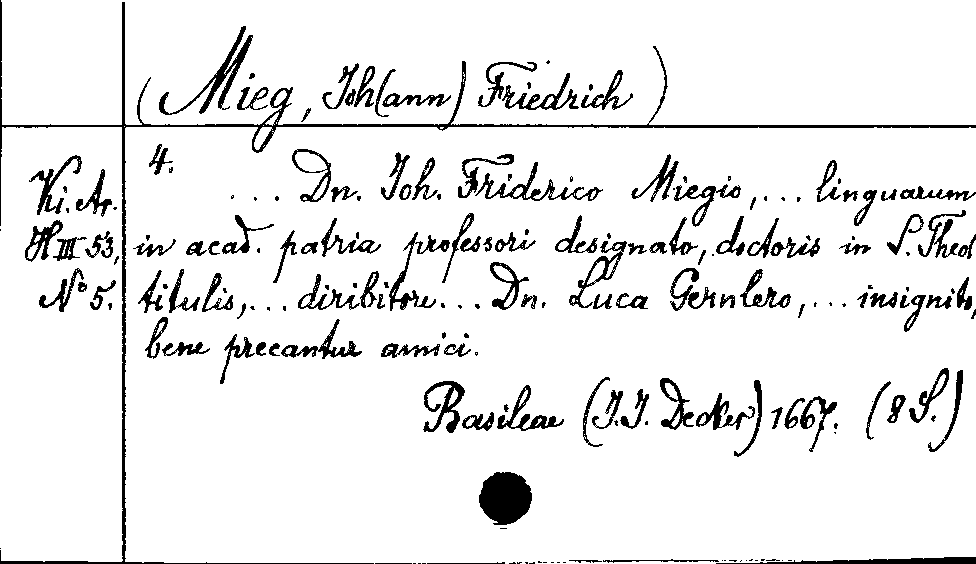 (Mieg, Joh(ann) Friedrich)
Ki. Ar.
H III 53,
No 5.
4. ... Dn. Joh. Friderico Miegio, ... linguarum
in acad. patria professori designato, doctoris in S. Theol
titulis, ... diribitore ... Dn. Luca Gernlero, ... insignito,
bene precantur amici.
Basileae (J.J. Decker) 1667. (8 S.)